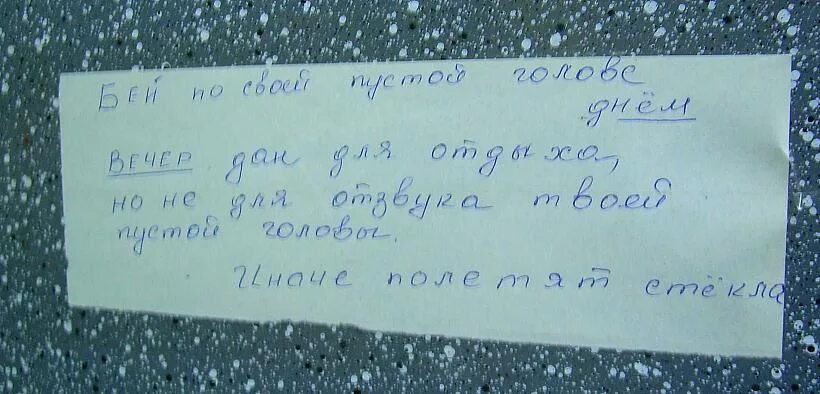 Бей по своей пустой голове
днём
Вечер дан для отдыха,
но не для отзвука твоей
пустой головы.
Иначе полетят стёкла